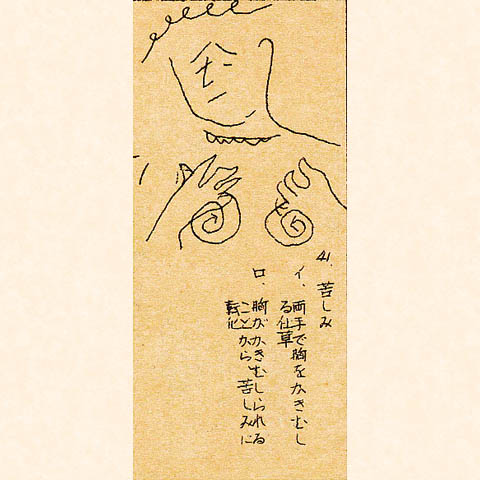 41. 苦しみ
イ、両手で胸をかきむし
る仕草
ロ、胸がかきむしられる
ことから苦しみに
転化